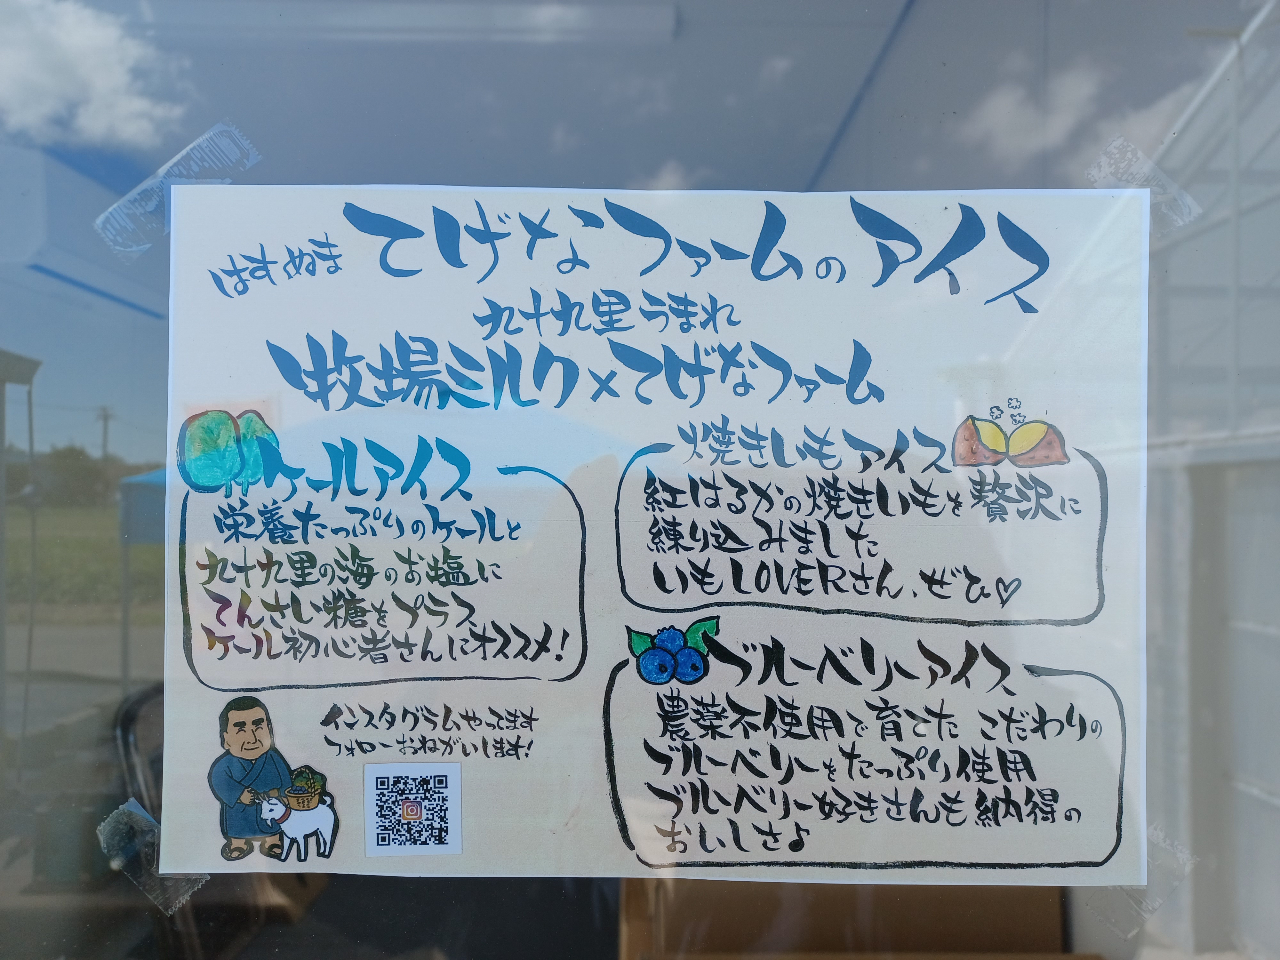 はすぬま てげなファームのアイス
九十九里うまれ
牧場ミルク×てげなファーム
ケールアイス
栄養たっぷりのケールと
九十九里の海のお塩に
てんさい糖をプラス
ケール初心者さんにオススメ!
焼きいもアイス
紅はるかの焼きいもを贅沢に
練り込みました
いもLOVERさん、ぜひ♡
ブルーベリーアイス
農薬不使用で育てたこだわりの
ブルーベリーをたっぷり使用
ブルーベリー好きさんも納得の
おいしさ♪
インスタグラムやってます
フォローおねがいします!